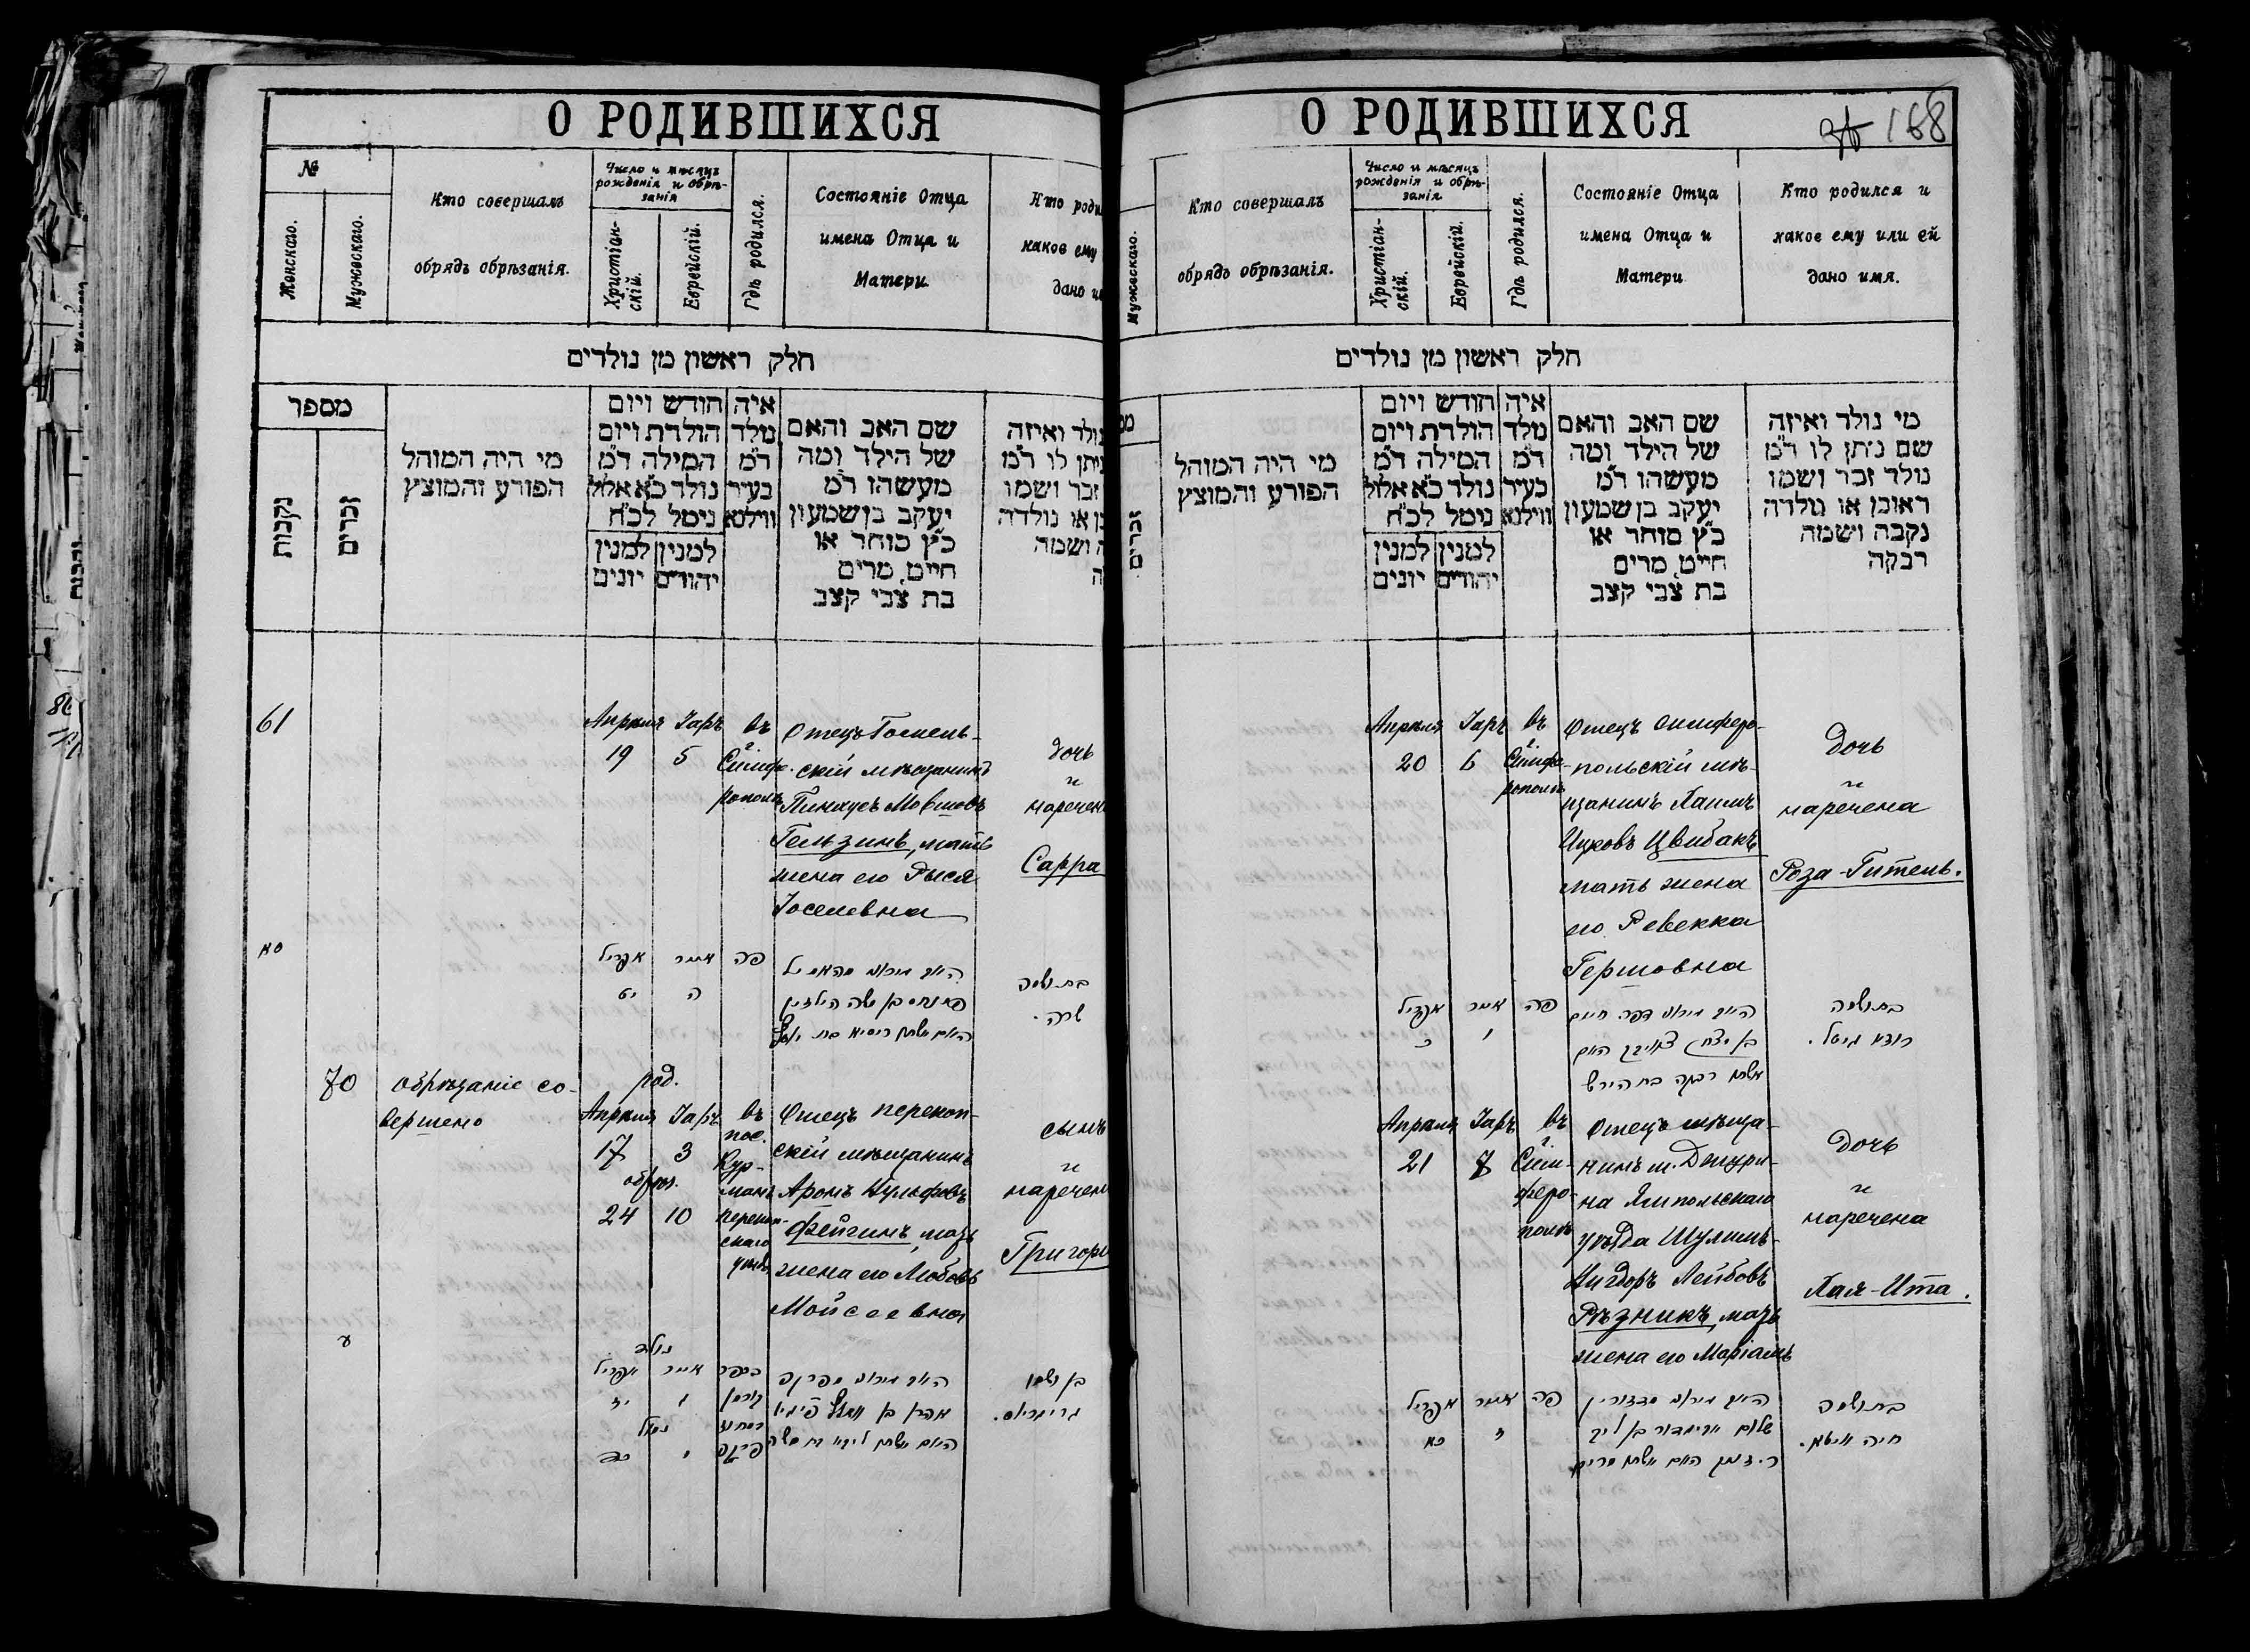 О РОДИВШИХСЯ
№
Женскаго.
Мужескаго.
Кто совершалъ
обрядъ обрѣзанія.
Число и мѣсяцъ
рожденія и обрѣ-
занія
Христіан-
скій.
Еврейскій.
Гдѣ родился.
Состояніе Отца
имена Отца и
Матери
Кто роди
какое ему
дано и
חלק ראשון מן נולדים
מספר
נקבות
זכרים
מי היה המוהל
הפורע והמוצץ
חודש ויום
הולדת ויום
המילה ד"מ
נולד כ"א אלול
נימל לכ"ח
למנין יהודים
למנין יונים
איה
מלד
ד"מ
בעיר
ווילנא
שם האב והאם
של הילד ומה
מעשהו ד"מ
יעקב בן שמעון
כ"ץ סוחר או
חייט, מרים
בת צבי קצב
נולד ואיזה
ניתן לו ד"מ
זכר ושמו
או נולדה
ושמה
61
Апрѣля Іаръ
19 5
въ
г.
Симфе-
рополѣ
Отецъ Гомель-
скій мѣщанинъ
Пинхусъ Мовшовъ
Гельзинъ, мать
жена его Рыся
Іоселевна
дочь
и
наречен
Сарра
סא
אפריל אייר פה
יט ה
בת ושמה
שרה.
70
обрѣзаніе со-
вершено
род.
Апрѣля Іаръ
17 3
обрѣз.
24 10
въ
пос.
Кур-
манъ
перекоп-
скаго
уѣзд
Отецъ перекоп-
скій мѣщанинъ
Аронъ Вульфовъ
Фейгинъ, мать
жена его Любовь
Мойсеевна
сынъ
и
наречен
Григорі
ע
נולד
אפריל אייר
בן ושמו
О РОДИВШИХСЯ
168
Мужескаго.
Кто совершалъ
обрядъ обрѣзанія.
Число и мѣсяцъ
рожденія и обрѣ-
занія.
Христіан-
скій.
Еврейскій.
Гдѣ родился.
Состояніе Отца
имена Отца и
Матери
Кто родился и
какое ему или ей
дано имя.
חלק ראשון מן נולדים
זכרים
מי היה המוהל
הפורע והמוצץ
חודש ויום
הולדת ויום
המילה ד"מ
נולד כ"א אלול
נימל לכ"ח
למנין יהודים
למנין יונים
איה
מלד
ד"מ
בעיר
ווילנא
שם האב והאם
של הילד ומה
מעשהו ד"מ
יעקב בן שמעון
כ"ץ סוחר או
חייט, מרים
בת צבי קצב
מי נולד ואיזה
שם ניתן לו ד"מ
נולד זכר ושמו
ראובן או נולדה
נקבה ושמה
רבקה
Апрѣля Іаръ
20 6
въ
г.
Симфе-
рополѣ
Отецъ симферо-
польскій мѣ-
щанинъ Хаимъ
Ицковъ Цвибакъ
мать жена
его Ревекка
Гершовна
дочь
и
наречена
Роза-Гитель.
אפריל אייר פה
כ ו
בן יצחק צוויבק האם
אשתו רבקה בת הירש
בת ושמה
רוזא גיטל.
Апрѣля Іаръ
21 7
въ
г.
Сим-
феро-
полѣ
Отецъ мѣща-
нинъ м. Дзыри-
на Ямпольскаго
уѣзда Шулимъ-
Вигдоръ Лейбовъ
Рѣзникъ, мать
жена его Маріамъ
дочь
и
наречена
Хая-Ита.
אפריל אייר פה
כא ז
בת ושמה
חיה איטא.